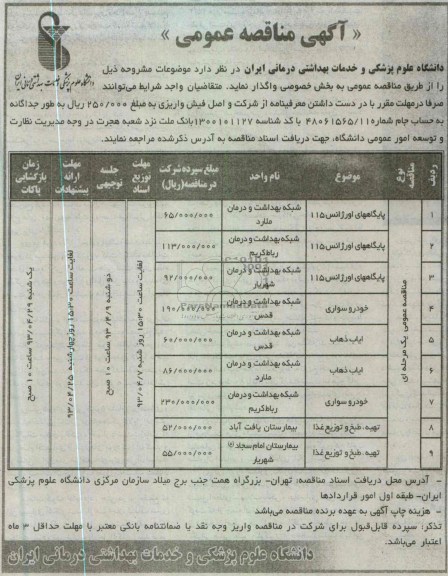 « آگهی مناقصه عمومی »
دانشگاه علوم پزشکی و خدمات بهداشتی درمانی ایران
دانشگاه علوم پزشکی و خدمات بهداشتی درمانی ایران در نظر دارد موضوعات مشروحه ذیل
را از طریق مناقصه عمومی به بخش خصوصی واگذار نماید. متقاضیان واجد شرایط می‌توانند
صرفا درمهلت مقرر با در دست داشتن معرفینامه از شرکت و اصل فیش واریزی به مبلغ ۲۵۰/۰۰۰ ریال به طور جداگانه
به حساب جام شماره ۴۸۰۶۱۵۶۵/۱۱ با کد شناسه ۱۳۰۰۱۰۱۱۲۷ بانک ملت نزد شعبه هجرت در وجه مدیریت نظارت
و توسعه امور عمومی دانشگاه، جهت دریافت اسناد مناقصه به آدرس ذکرشده مراجعه نمایند.
ردیف نوع مناقصه موضوع نام واحد مبلغ سپرده شرکت در مناقصه (ریال) مهلت توزیع اسناد جلسه توجیهی مهلت ارائه پیشنهادات زمان بازگشایی پاکات
۱ پایگاههای اورژانس ۱۱۵ شبکه بهداشت و درمان ملارد ۶۵/۰۰۰/۰۰۰
۲ پایگاههای اورژانس ۱۱۵ شبکه بهداشت و درمان رباط‌کریم ۱۱۳/۰۰۰/۰۰۰
۳ پایگاههای اورژانس ۱۱۵ شبکه بهداشت و درمان شهریار ۹۲/۰۰۰/۰۰۰
۴ خودرو سواری شبکه بهداشت و درمان قدس ۱۹۰/۰۰۰/۰۰۰
۵ ایاب ذهاب شبکه بهداشت و درمان قدس ۶۰/۰۰۰/۰۰۰
۶ ایاب ذهاب شبکه بهداشت و درمان ملارد ۸۶/۰۰۰/۰۰۰
۷ خودرو سواری شبکه بهداشت و درمان رباط‌کریم ۲۳۰/۰۰۰/۰۰۰
۸ تهیه، طبخ و توزیع غذا بیمارستان یافت آباد ۵۲/۰۰۰/۰۰۰
۹ تهیه، طبخ و توزیع غذا بیمارستان امام سجاد (ع) شهریار ۵۵/۰۰۰/۰۰۰
مناقصه عمومی یک مرحله ای
لغایت ساعت ۱۵:۳۰ روز شنبه ۹۳/۰۴/۷
دو شنبه ۹۳/۰۴/۹ ساعت ۱۰ صبح
لغایت ساعت ۱۵:۳۰ روز چهارشنبه ۹۳/۰۴/۲۵
یک شنبه ۹۳/۰۴/۲۹ ساعت ۱۰ صبح
- آدرس محل دریافت اسناد مناقصه: تهران- بزرگراه همت جنب برج میلاد سازمان مرکزی دانشگاه علوم پزشکی
ایران- طبقه اول امور قراردادها
- هزینه چاپ آگهی به عهده برنده مناقصه می‌باشد
تذکر: سپرده قابل‌قبول برای شرکت در مناقصه واریز وجه نقد یا ضمانتنامه بانکی معتبر با مهلت حداقل ۳ ماه
اعتبار می‌باشد.
دانشگاه علوم پزشکی و خدمات بهداشتی درمانی ایران